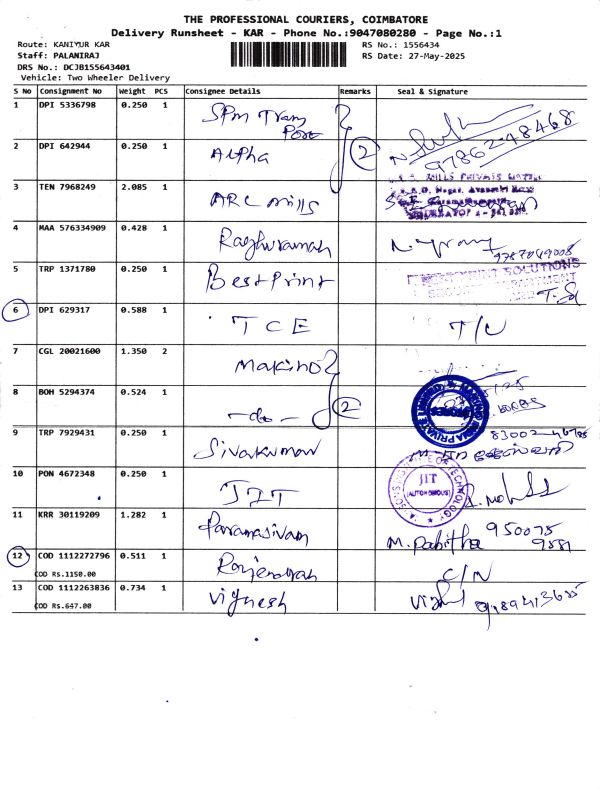 THE PROFESSIONAL COURIERS, COIMBATORE
Delivery Runsheet - KAR - Phone No.:9047080280 - Page No.:1
Route: KANIYUR KAR
RS No.: 1556434
Staff: PALANIRAJ
RS Date: 27-May-2025
DRS No.: DCJB155643401
Vehicle: Two Wheeler Delivery
S No Consignment No Weight PCS Consignee Details Remarks Seal & Signature
1 DPI 5336798 0.250 1 SPM Trans Port
2 DPI 642944 0.250 1 Alpha 2 9786248468
3 TEN 7968249 2.085 1 ARC mills
MILLS PRIVATE
4 MAA 576334909 0.428 1 Raghuraman 9787049008
5 TRP 1371780 0.250 1 Best Print
SOLUTIONS
6 DPI 629317 0.588 1 TCE T/N
7 CGL 20021600 1.350 2 Makino
8 BOH 5294374 0.524 1 -do- 2
INDIA PRIVATE LIMITED
STORES
9 TRP 7929431 0.250 1 Sivakumar 83002
10 PON 4672348 0.250 1 JIT
JIT
(AUTONOMOUS)
INSTITUTE OF TECHNOLOGY
11 KRR 30119209 1.282 1 Paramasivam M. Pabitha 950075
12 COD 1112272796 0.511 1 Rajendran C/N
COD Rs.1150.00
13 COD 1112263836 0.734 1 Vignesh
COD Rs.647.00